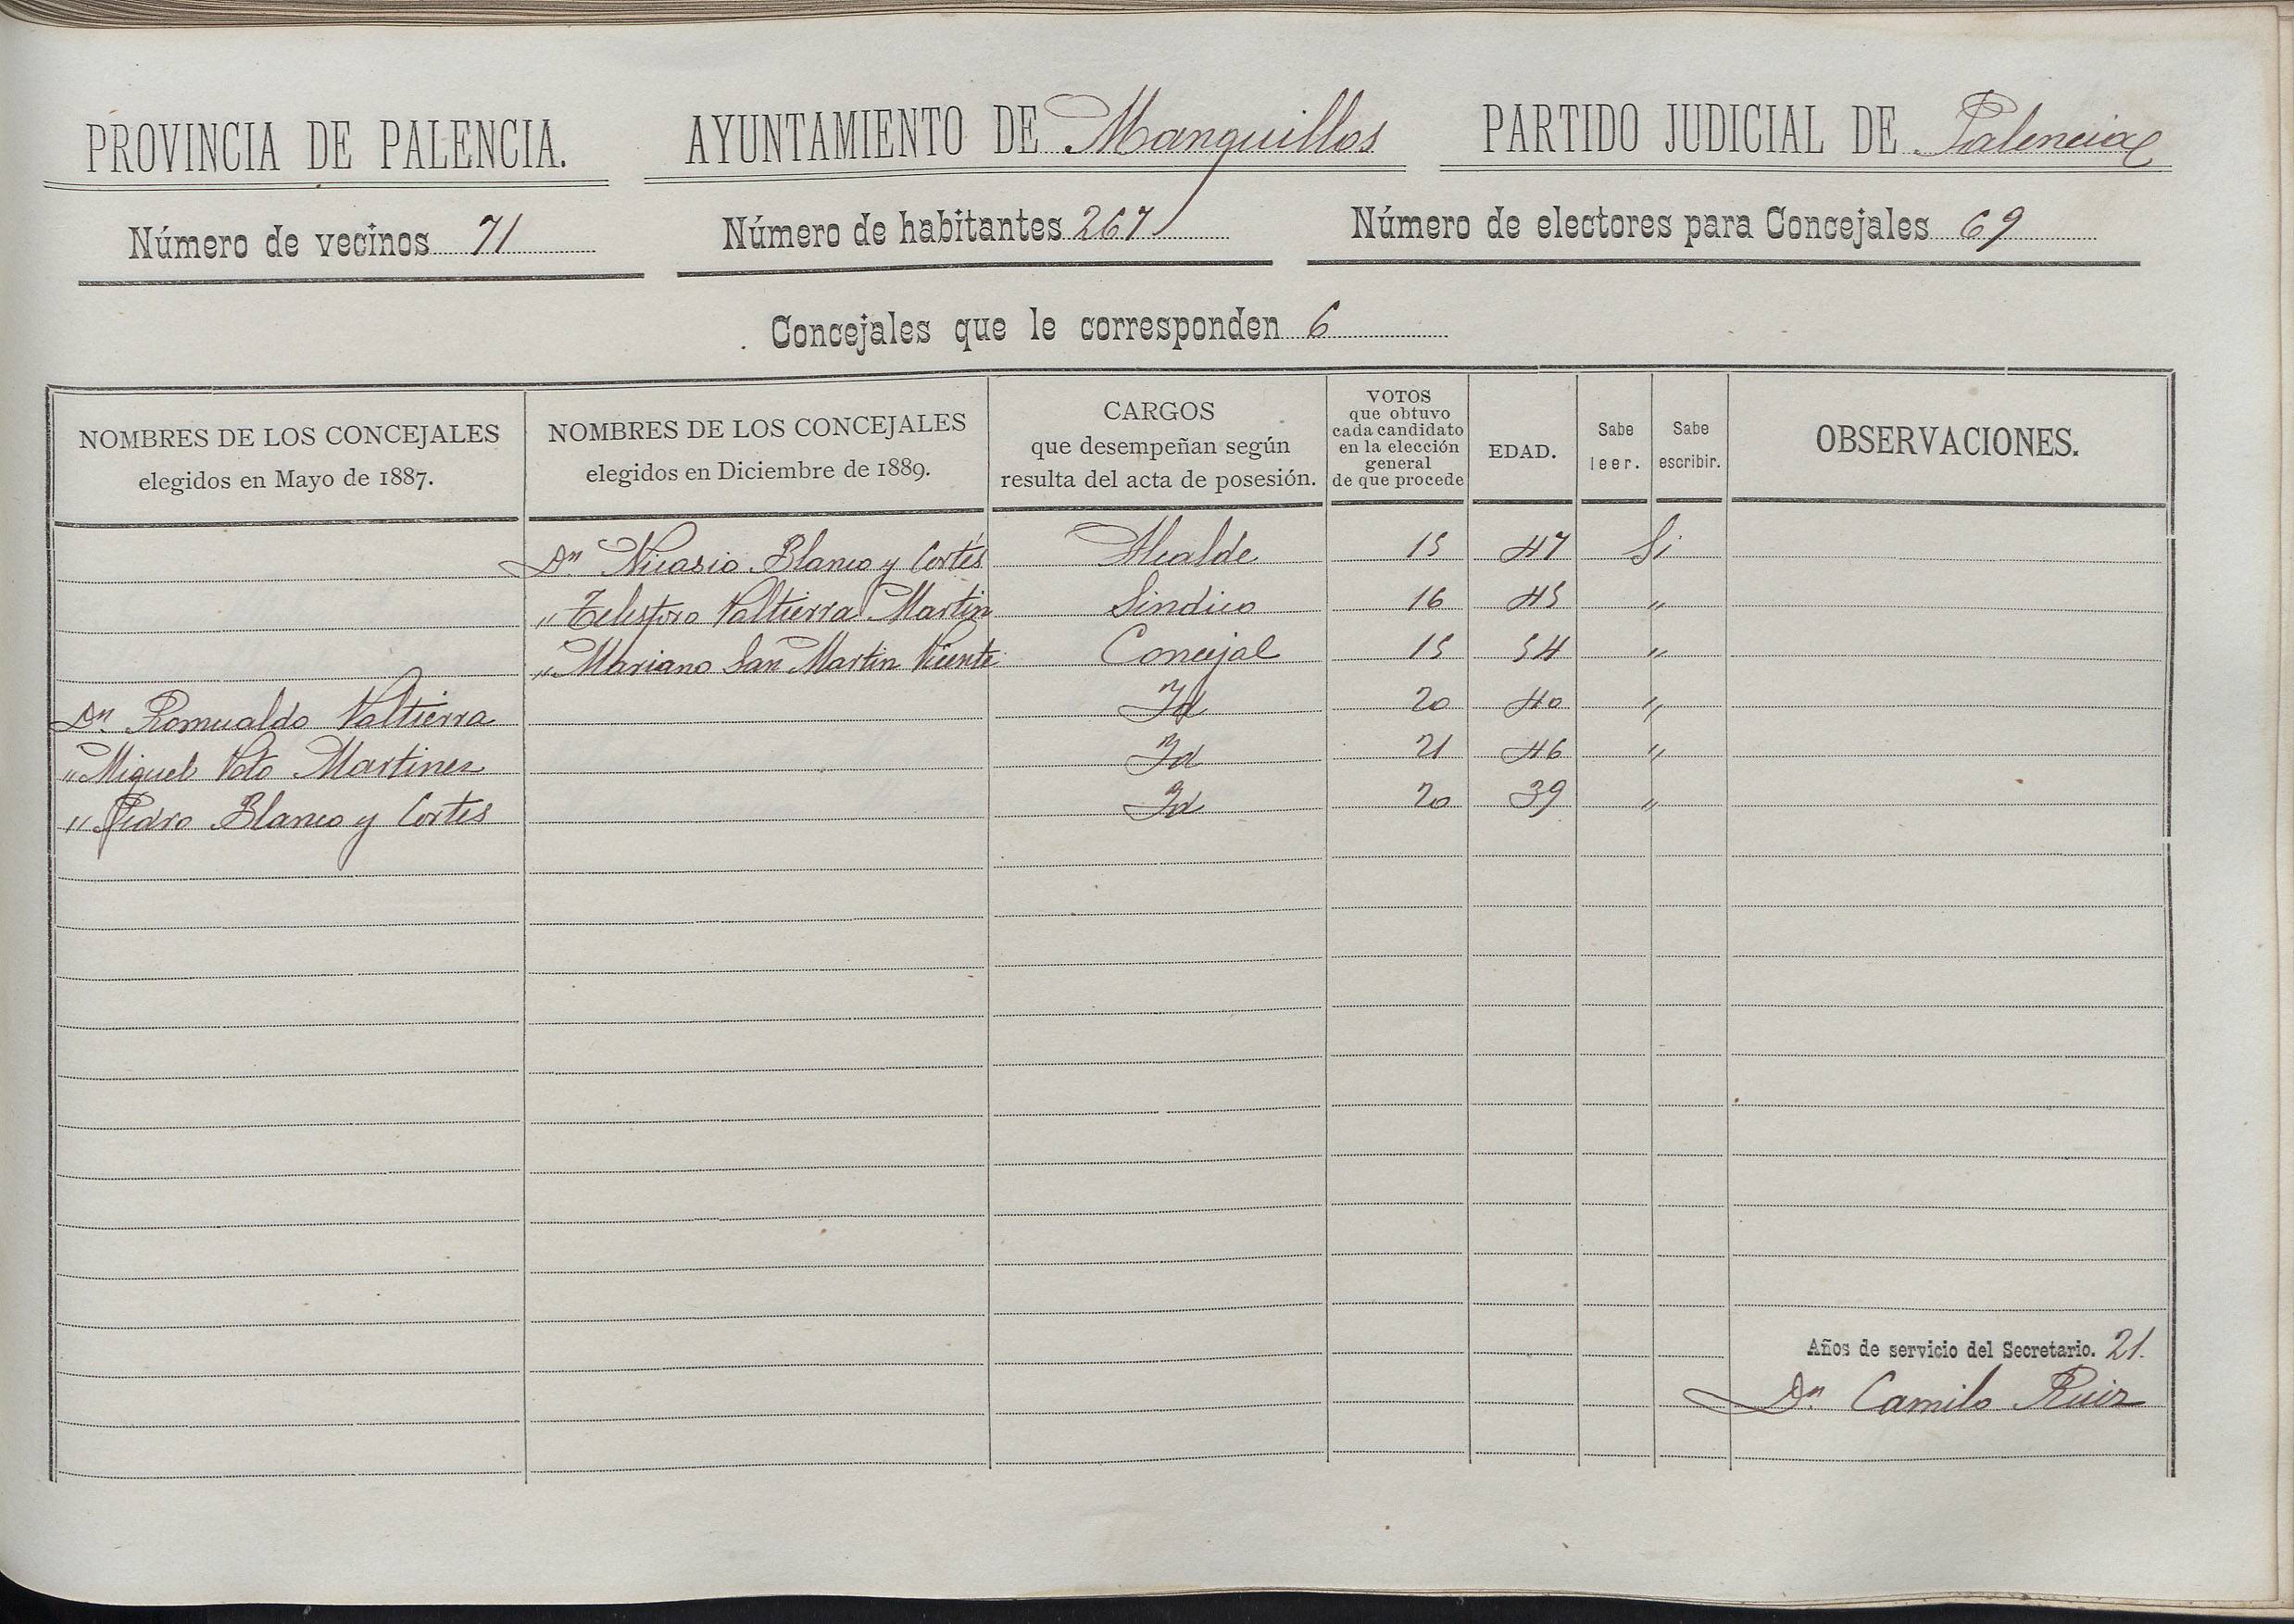 PROVINCIA DE PALENCIA. AYUNTAMIENTO DE Manquillos PARTIDO JUDICIAL DE Palencia
Número de vecinos 71 Número de habitantes 267 Número de electores para Concejales 69
Concejales que le corresponden 6
NOMBRES DE LOS CONCEJALES elegidos en Mayo de 1887. NOMBRES DE LOS CONCEJALES elegidos en Diciembre de 1889. CARGOS que desempeñan según resulta del acta de posesión. VOTOS que obtuvo cada candidato en la elección general de que procede EDAD. Sabe leer. Sabe escribir. OBSERVACIONES.
Dn. Nicasio Blanco y Cortés Alcalde 15 47 Si
" Telesforo Valtierra Martin Sindico 16 45 "
" Mariano San Martin Vicente Concejal 15 54 "
Dn. Romualdo Valtierra Id 20 40 "
" Miguel Poto Martinez Id 21 46 "
" Pedro Blanco y Cortes Id 20 39 "
Años de servicio del Secretario. 21.
Dn. Camilo Ruiz